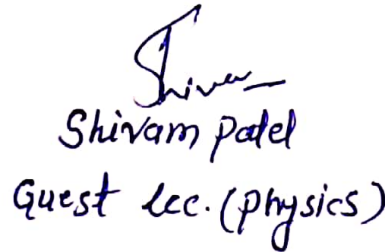 Shivam
Shivam Patel
Guest lec. (physics)